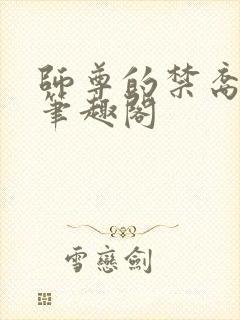 師尊的禁
筆趣閣
雪戀劍